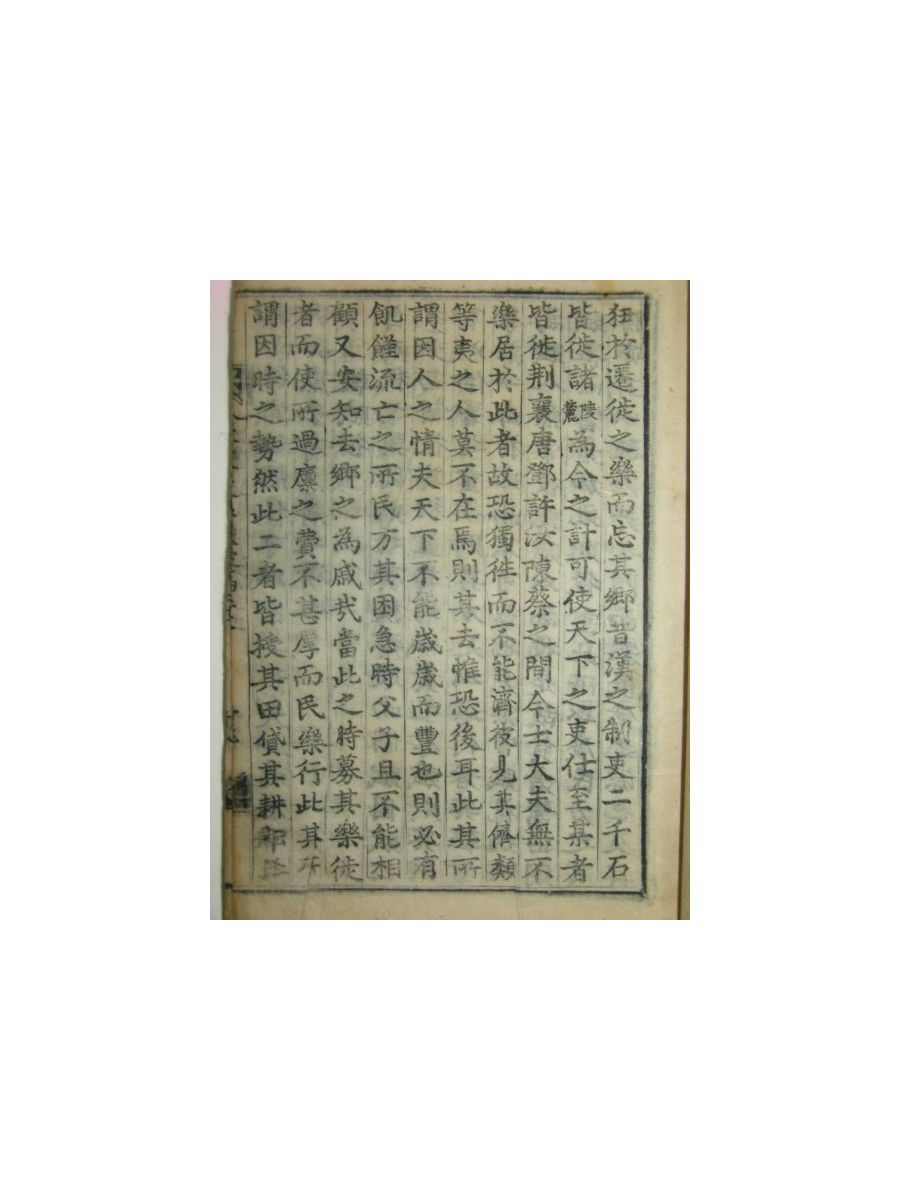 狃於遷徙之樂而忘其鄉昔漢之制吏二千石
皆徙諸陵麓為今之計可使天下之吏仕至某者
皆徙荆襄唐鄧許汝陳蔡之間今士大夫無不
樂居於此者故恐獨徃而不能濟彼見其儕類
等夷之人莫不在焉則其去惟恐後耳此其所
謂因人之情夫天下不能歳歳而豐也則必有
飢饉流亡之所民方其困急時父子且不能相
顧又安知去鄉之為戚㢤當此之時募其樂徙
者而使所過廩之費不甚厚而民樂行此其所
謂因時之勢然此二者皆授其田貸其耕